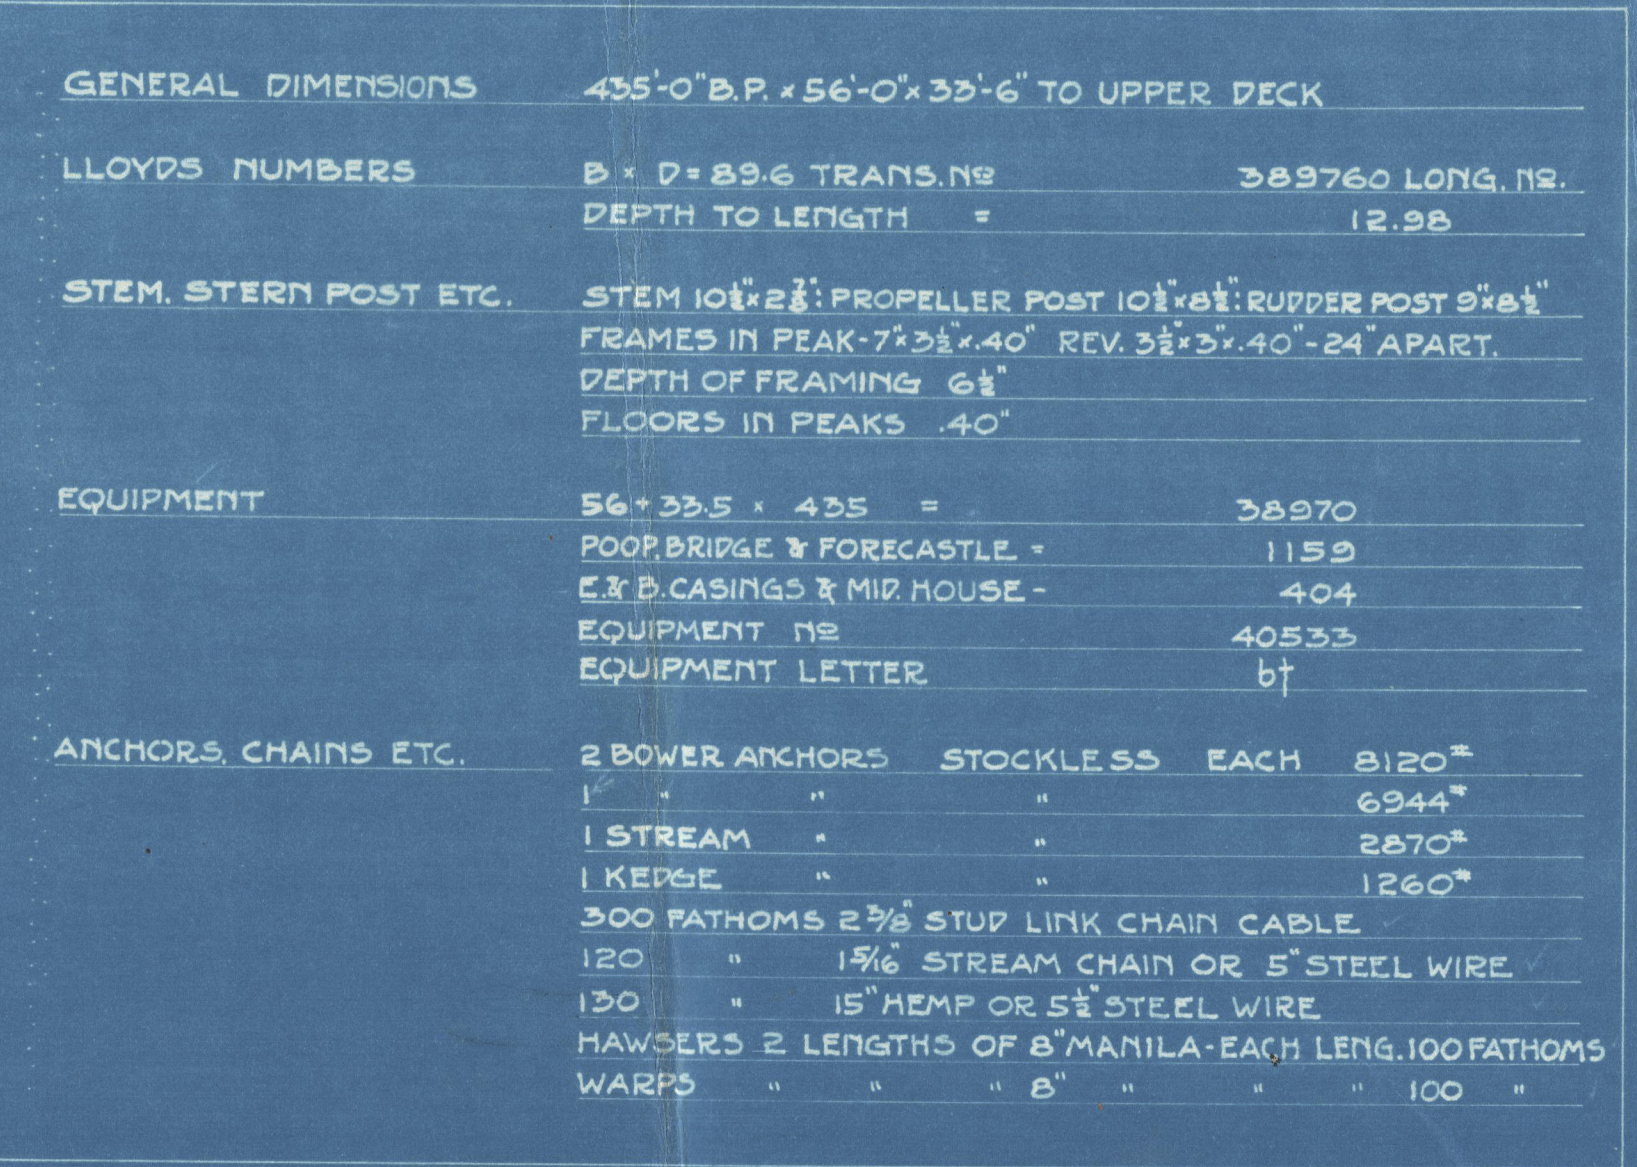 GENERAL DIMENSIONS 435'-0" B.P. × 56'-0" × 33'-6" TO UPPER DECK
LLOYDS NUMBERS B × D = 89.6 TRANS. Nº 389760 LONG. Nº.
DEPTH TO LENGTH = 12.98
STEM, STERN POST ETC. STEM 10½" × 2⅞" : PROPELLER POST 10½" × 8½" : RUDDER POST 9" × 8½"
FRAMES IN PEAK - 7" × 3½" × .40" REV. 3½" × 3" × .40" - 24" APART.
DEPTH OF FRAMING 6½"
FLOORS IN PEAKS .40"
EQUIPMENT 56 + 33.5 × 435 = 38970
POOP, BRIDGE & FORECASTLE = 1159
E. & B. CASINGS & MID. HOUSE - 404
EQUIPMENT Nº 40533
EQUIPMENT LETTER b†
ANCHORS, CHAINS ETC. 2 BOWER ANCHORS STOCKLESS EACH 8120#
1 " " " 6944#
1 STREAM " " 2870#
1 KEDGE " " 1260#
300 FATHOMS 2 3/8" STUD LINK CHAIN CABLE
120 " 1 5/16" STREAM CHAIN OR 5" STEEL WIRE
130 " 15" HEMP OR 5½" STEEL WIRE
HAWSERS 2 LENGTHS OF 8" MANILA - EACH LENG. 100 FATHOMS
WARPS " " " 8" " " " 100 "